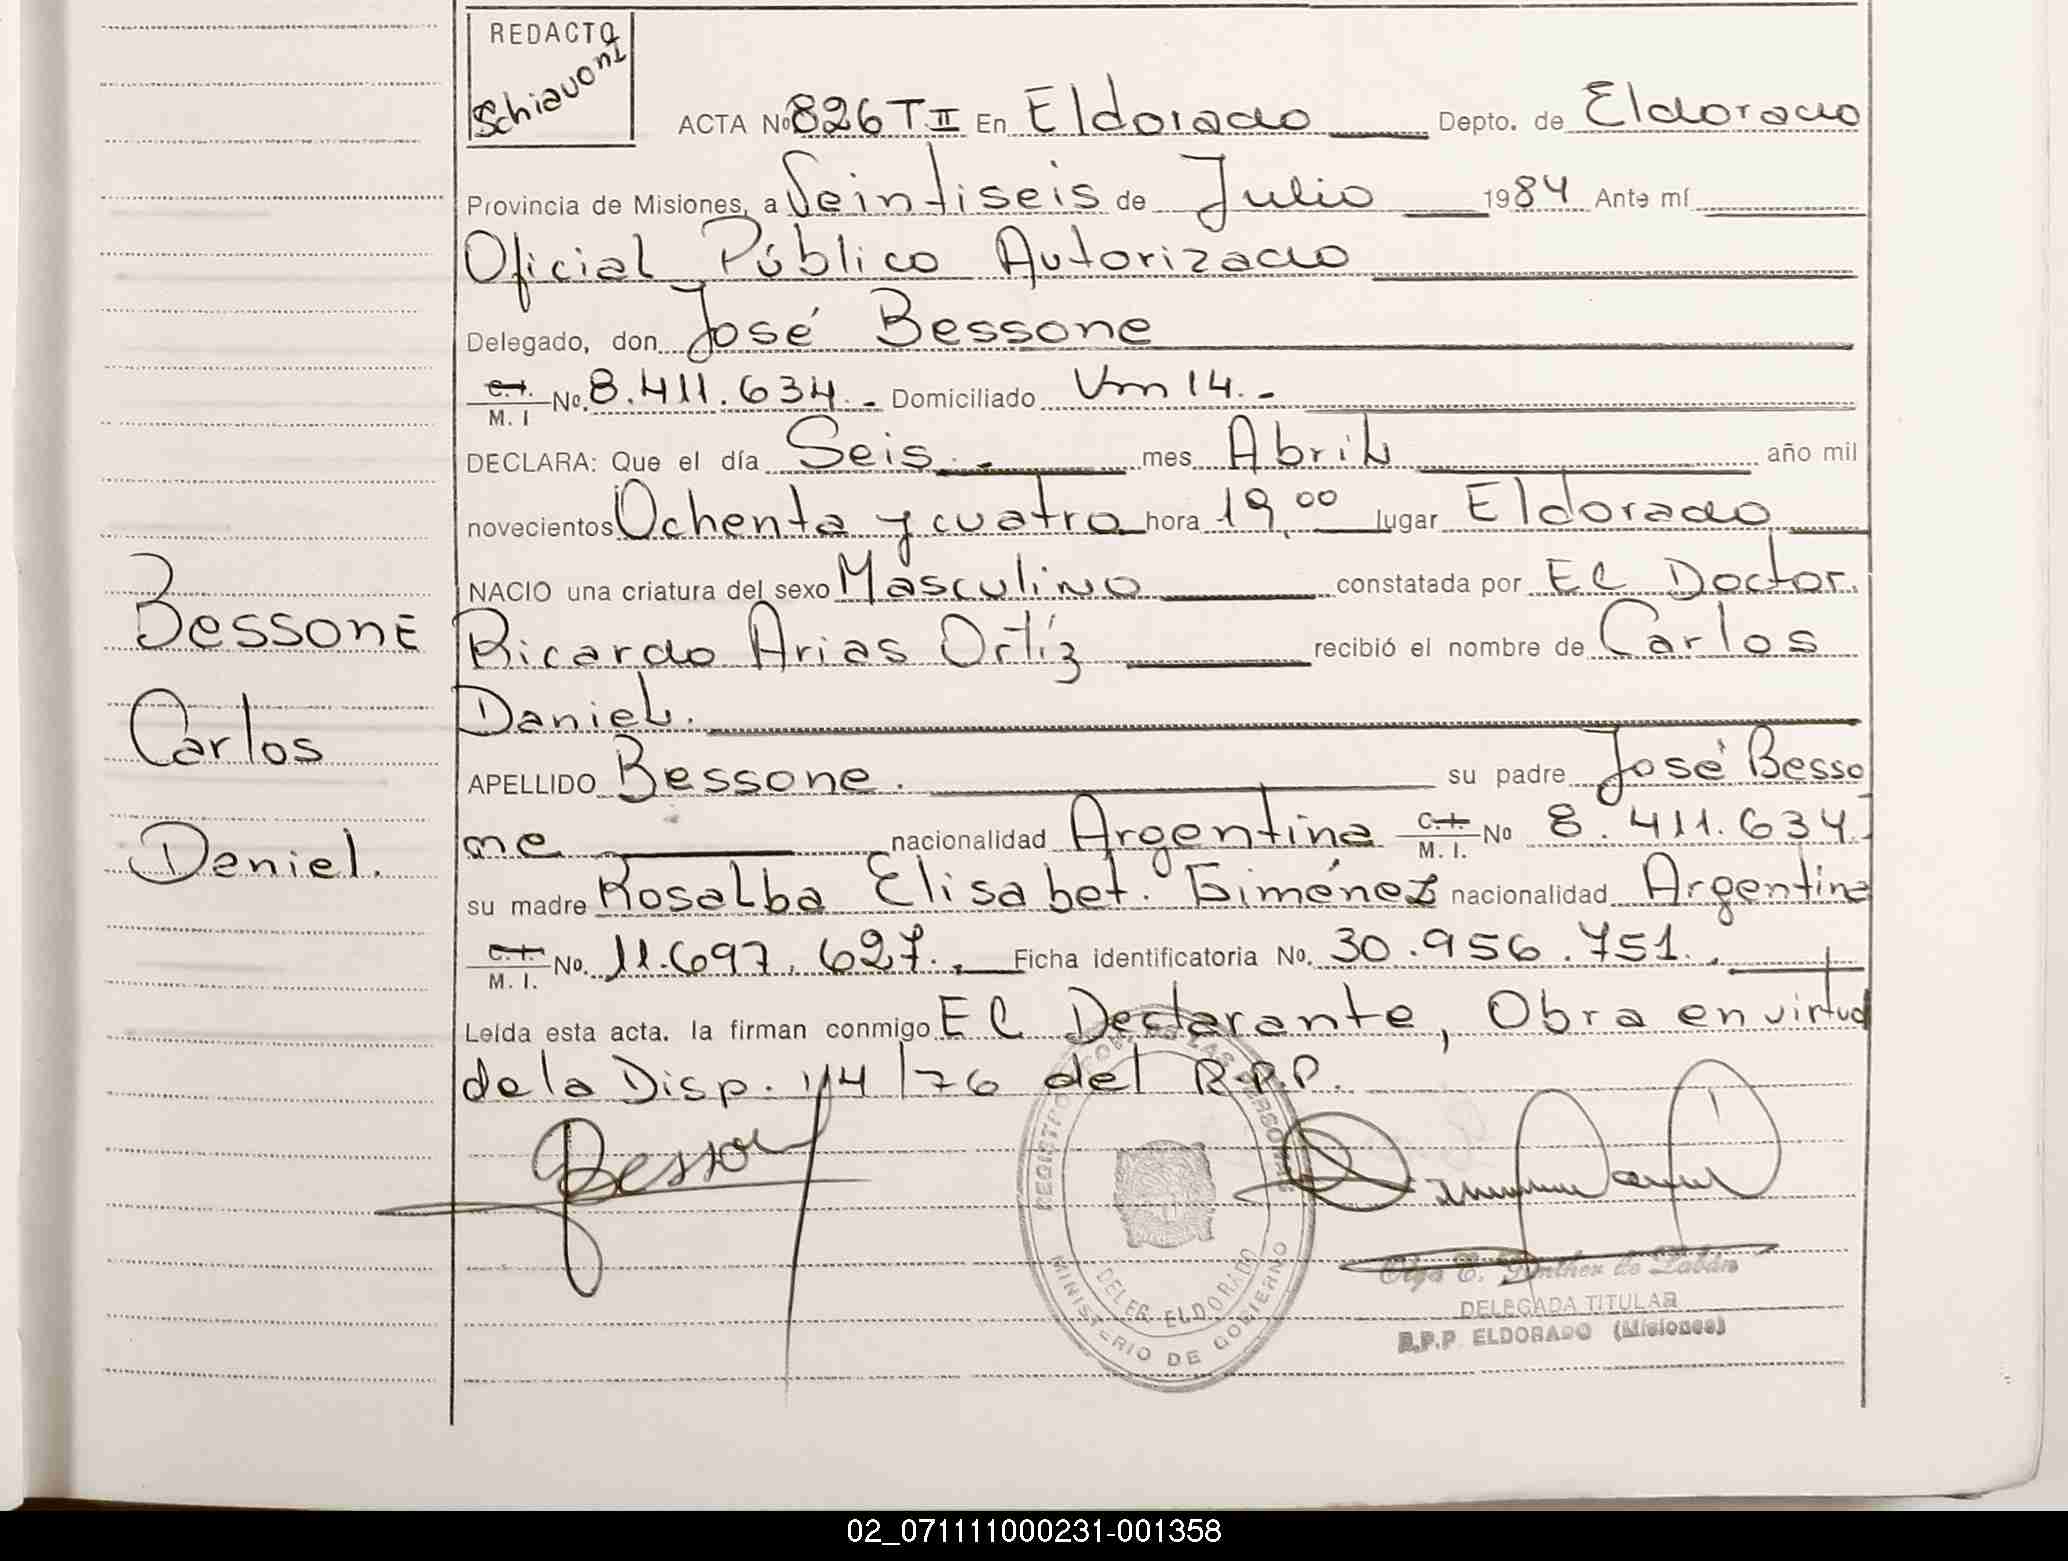 REDACTO
Schiavoni
ACTA Nº 826 T II En Eldorado Depto. de Eldorado
Provincia de Misiones, a Veintiseis de Julio 1984 Ante mí
Oficial Público Autorizado
Delegado, don José Bessone
C.I. M. I No. 8.411.634.- Domiciliado Km 14.-
DECLARA: Que el día Seis.- mes Abril año mil
novecientos Ochenta y cuatro hora 19,00 lugar Eldorado
NACIO una criatura del sexo Masculino constatada por El Doctor.
Ricardo Arias Ortíz recibió el nombre de Carlos
Daniel.
APELLIDO Bessone. su padre José Besso
ne nacionalidad Argentina C.I. M. I. No 8.411.634.
su madre Rosalba Elisabet. Giménez nacionalidad Argentina
C.I. M. I. No. 11.697.627.- Ficha identificatoria No. 30.956.751.-
Leída esta acta. la firman conmigo El Declarante, Obra en virtud
de la Disp. 114/76 del R.P.P.
Bessone
Carlos
Daniel.
REGISTRO LAS PERSONAS
DELEG. ELDORADO
MINISTERIO DE GOBIERNO
Olga E. de
DELEGADA TITULAR
R.P.P ELDORADO (Misiones)
02_071111000231-001358